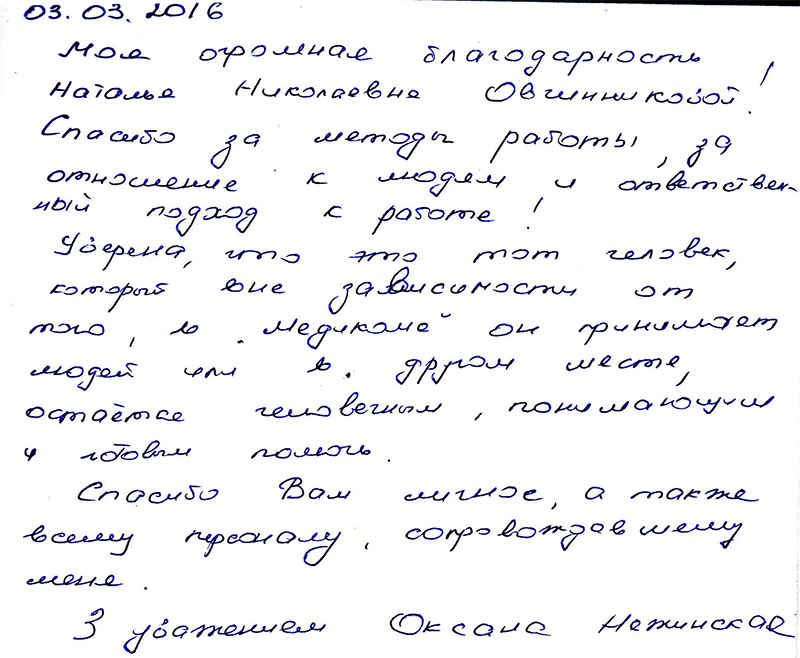 03.03.2016
Моя огромная благодарность
Наталье Николаевне Овчинниковой!
Спасибо за методы работы, за
отношение к людям и ответствен-
ный подход к работе!
Уверена, что это тот человек,
который вне зависимости от
того, в "Медикоме" он принимает
людей или в другом месте,
остаётся человечным, понимающим
и готовым помочь.
Спасибо Вам личное, а также
всему персоналу, сопровождавшему
меня.
З уважением Оксана Нежинская